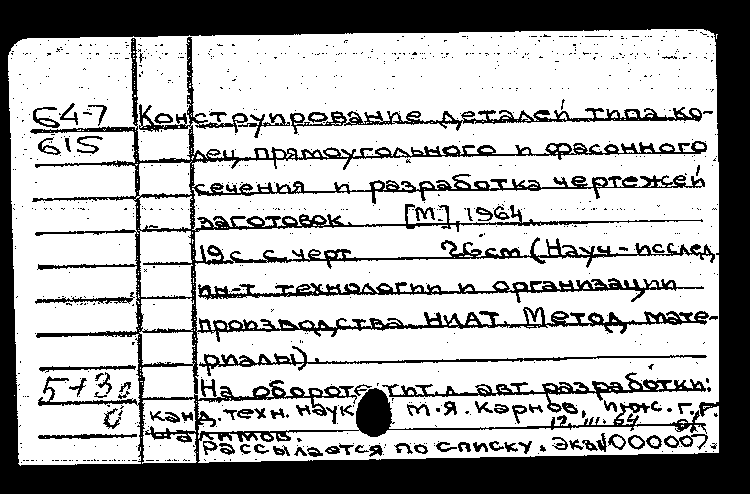 64-7 Конструирование деталей типа ко-
615 лец прямоугольного и фасонного
сечения и разработка чертежей
заготовок. [М.], 1964.
19 с с черт 26 см (Науч-исслед.
ин-т технологии и организации
производства НИАТ. Метод. мате-
риалы).
5+3 На обороте тит. л. авт. разработки:
канд. техн. наук М.Я. Карнов, инж. Г.Г.
12.III.64
Рассылается по списку. Экз. 000007.